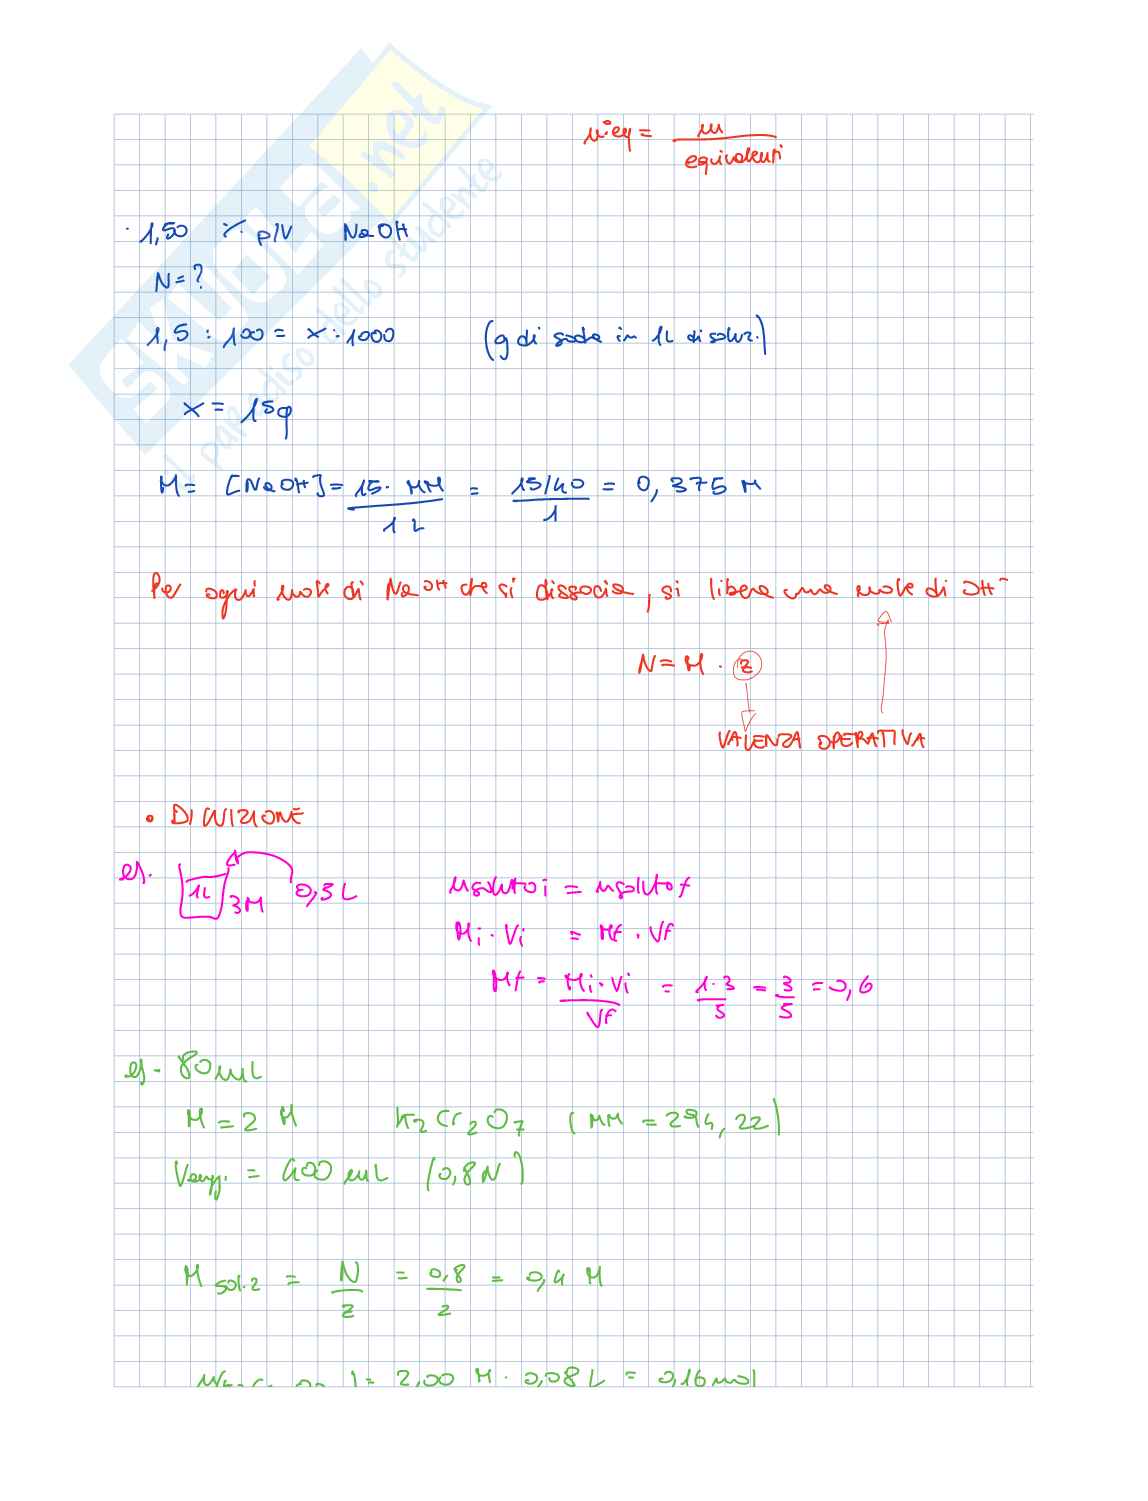 n°eq = m / equivalenti
SKUOLA.net
il paradiso dello studente
· 1,50 % p/V NaOH
N = ?
1,5 : 100 = x : 1000 (g di soda in 1L di soluz.)
x = 15g
M = [NaOH] = 15 · MM / 1 L = 15/40 / 1 = 0,375 M
Per ogni mole di NaOH che si dissocia, si libera una mole di OH⁻
N = M · z
VALENZA OPERATIVA
• DILUIZIONE
es. 1L 3M 0,3L
nsoluto i = nsoluto f
Mi · Vi = Mf · Vf
Mf = Mi · Vi / Vf = 1·3 / 5 = 3/5 = 0,6
es. 80 mL
M = 2 M K2Cr2O7 (MM = 294,22)
Vagg. = 400 mL (0,8 N)
M sol.2 = N / z = 0,8 / 2 = 0,4 M
= 2,00 M · 0,08 L = 0,16 mol